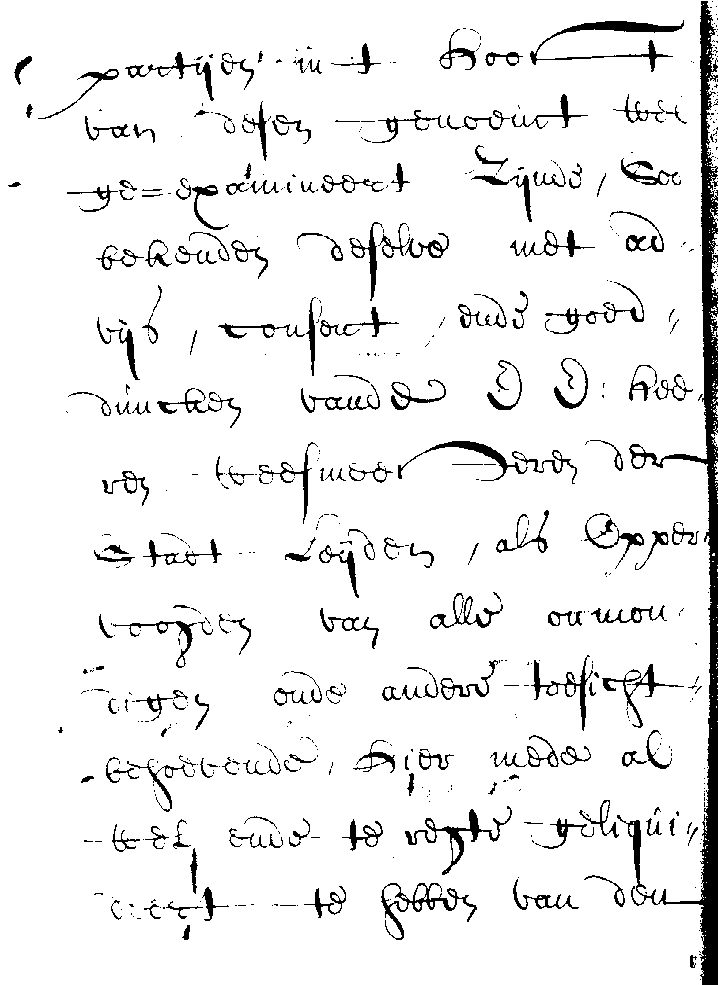 partijen in't hooft
van desen genoemt wel
ge=examineert Zijnde, Soo
bekenden deselve met ad
vijs, consent, ende goed„
duncken vande E E: Hee-
ren Weesmeesteren der
Stadt Leijden, als Opper
voogden van alle onmon
digen ende andere toesicht„
behoevende, hier mede al
wel ende te rechte geliqui„
deert te hebben van den